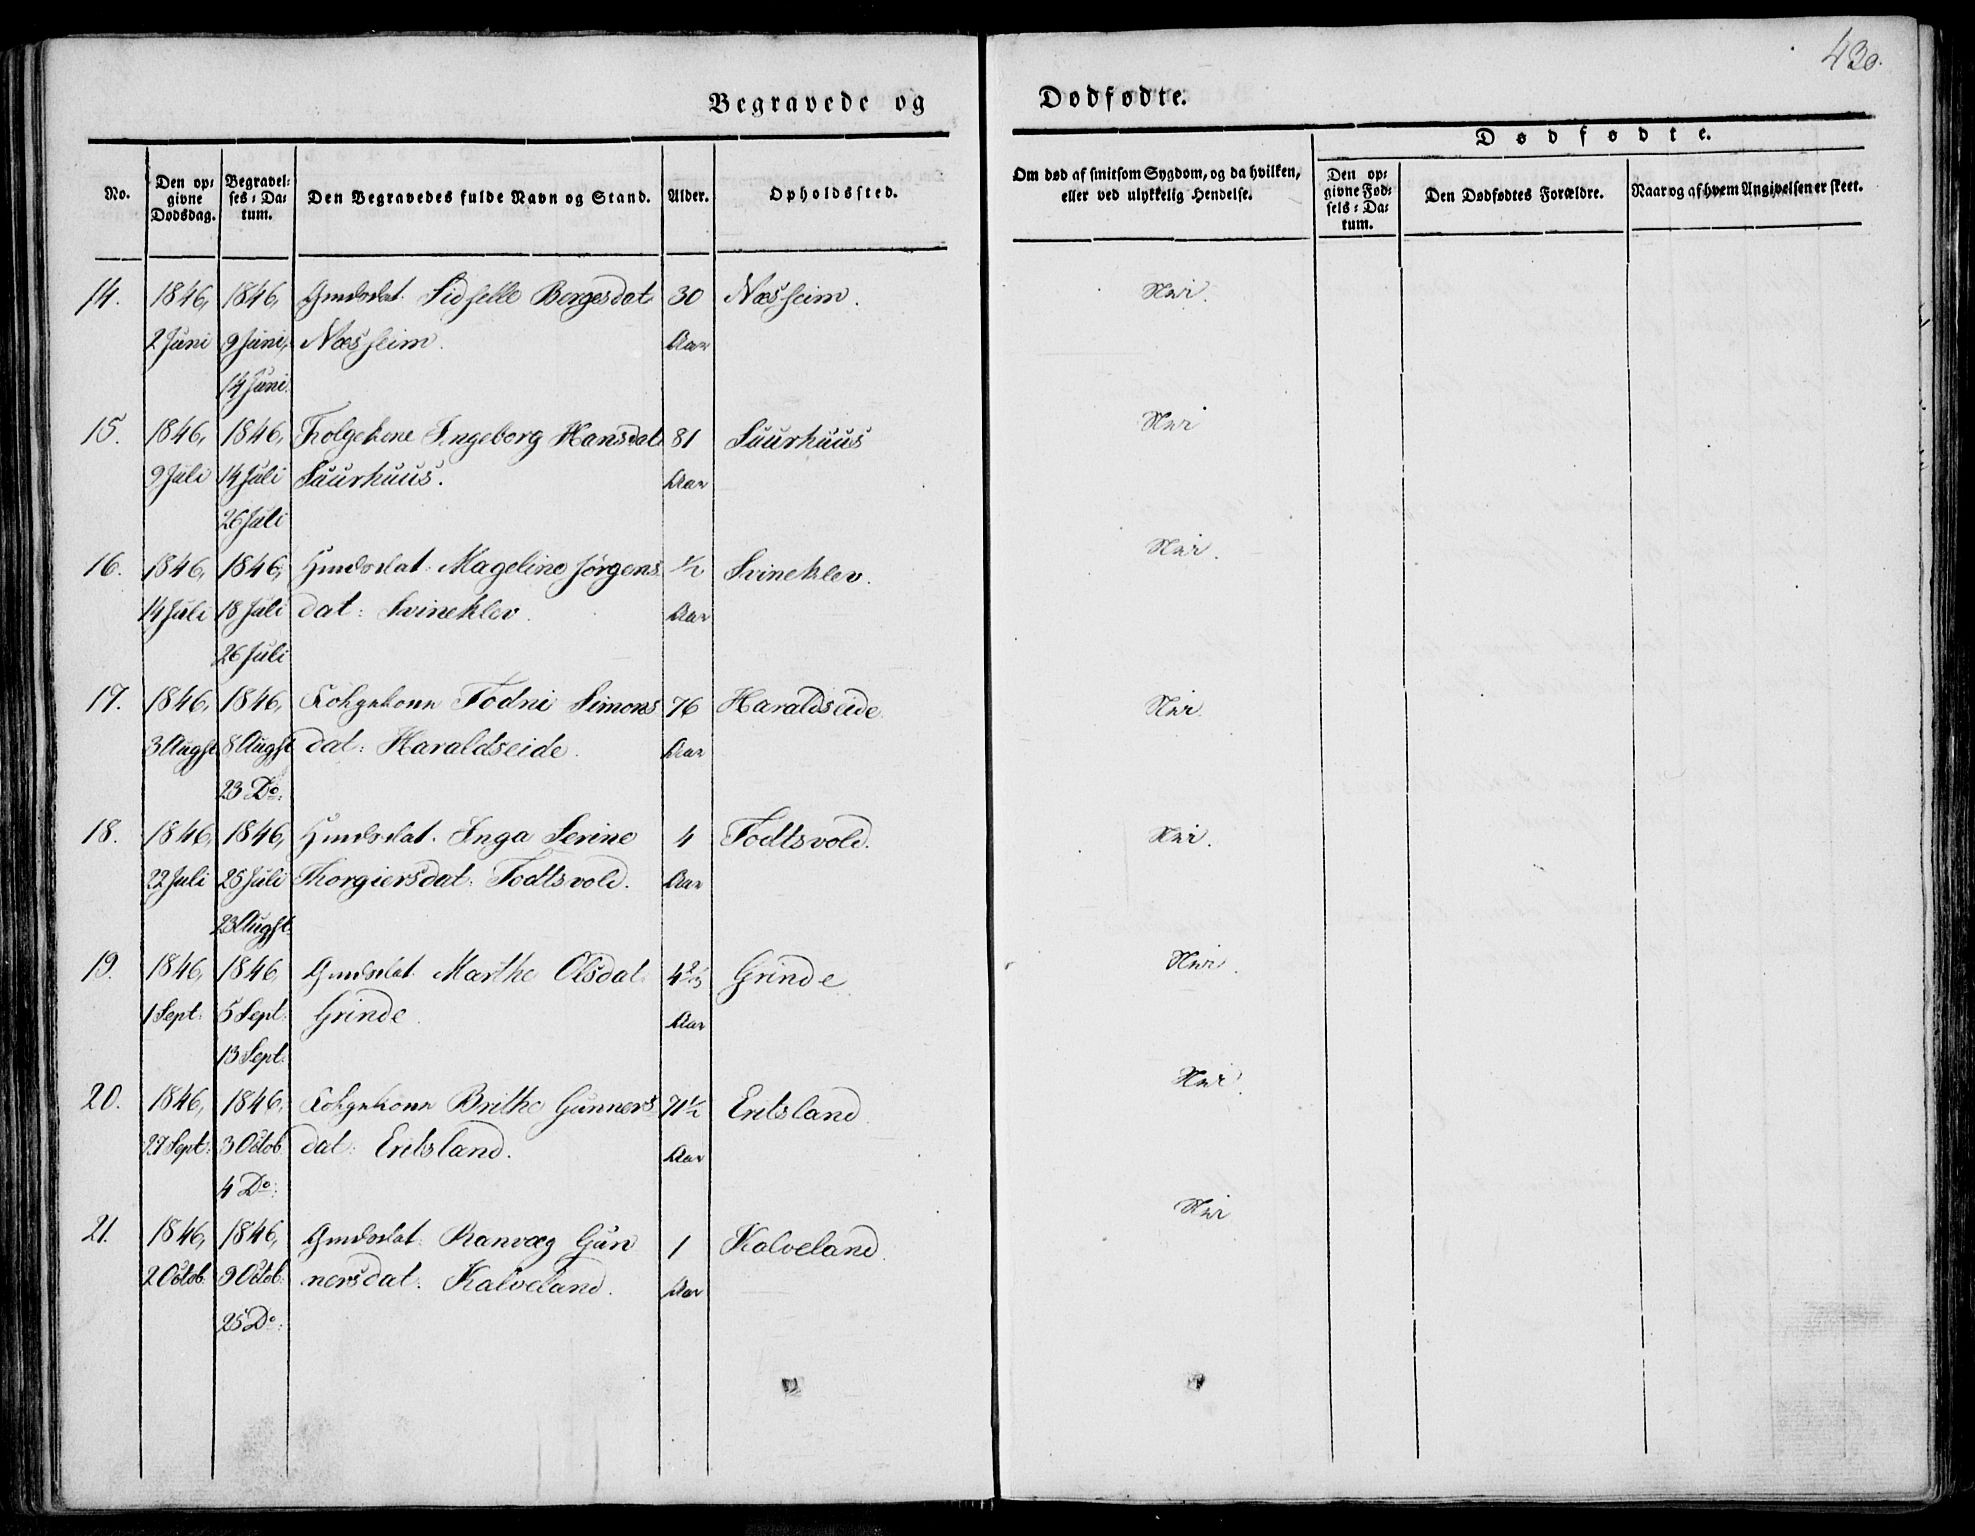 430.
Begravede og Dødfødte.
Dødfødte.
No.
Den op-
givne
Dødsdag.
Begravel-
ses-Da-
tum.
Den Begravedes fulde Navn og Stand.
Alder.
Opholdssted.
Om død af smitsom Sygdom, og da hvilken,
eller ved ulykkelig Hendelse.
Den op-
givne Fød-
sels-Da-
tum.
Den Dødfødtes Forældre.
Naar og af hvem Angivelsen er skeet.
14. 1846, 1846, Sidselle Bergesdat 30 Næsheim. Nei.
2 Juni 9 Juni, Næsheim. Aar
14 Juni.
15. 1846, 1846, Folgekone Ingeborg Hansdat 81 Suurhuus Nei
9 Juli 14 Juli Suurhuus. Aar
26 Juli
16. 1846, 1846, Mageline Jørgens ½ Svineklev. Nei.
14 Juli 18 Juli dat: Svineklev. Aar
26 Juli
17. 1846, 1846, Folgekone Todni Simons 76 Haraldseide. Nei.
3 Augst 8 Augst dat: Haraldseide. Aar
23 Do:
18. 1846, 1846, Inga Serine 4 Todtsvold. Nei.
22 Juli 25 Juli Thorgiersdat: Todtsvold. Aar
23 Augst.
19. 1846, 1846 Marthe Olsdat Grinde Nei.
1 Sept: 5 Sept: Grinde. Aar
13 Sept:
20. 1846, 1846, Folgekone Brithe Gunners 71½ Eritsland Nei.
27 Sept: 3 Octob. dat: Eritsland. Aar
4 Do:
21. 1846, 1846, Ranvæg Gun 1 Kalveland. Nei
2 Octob: 9 Octob: nersdat. Kalveland. Aar
25 Do: